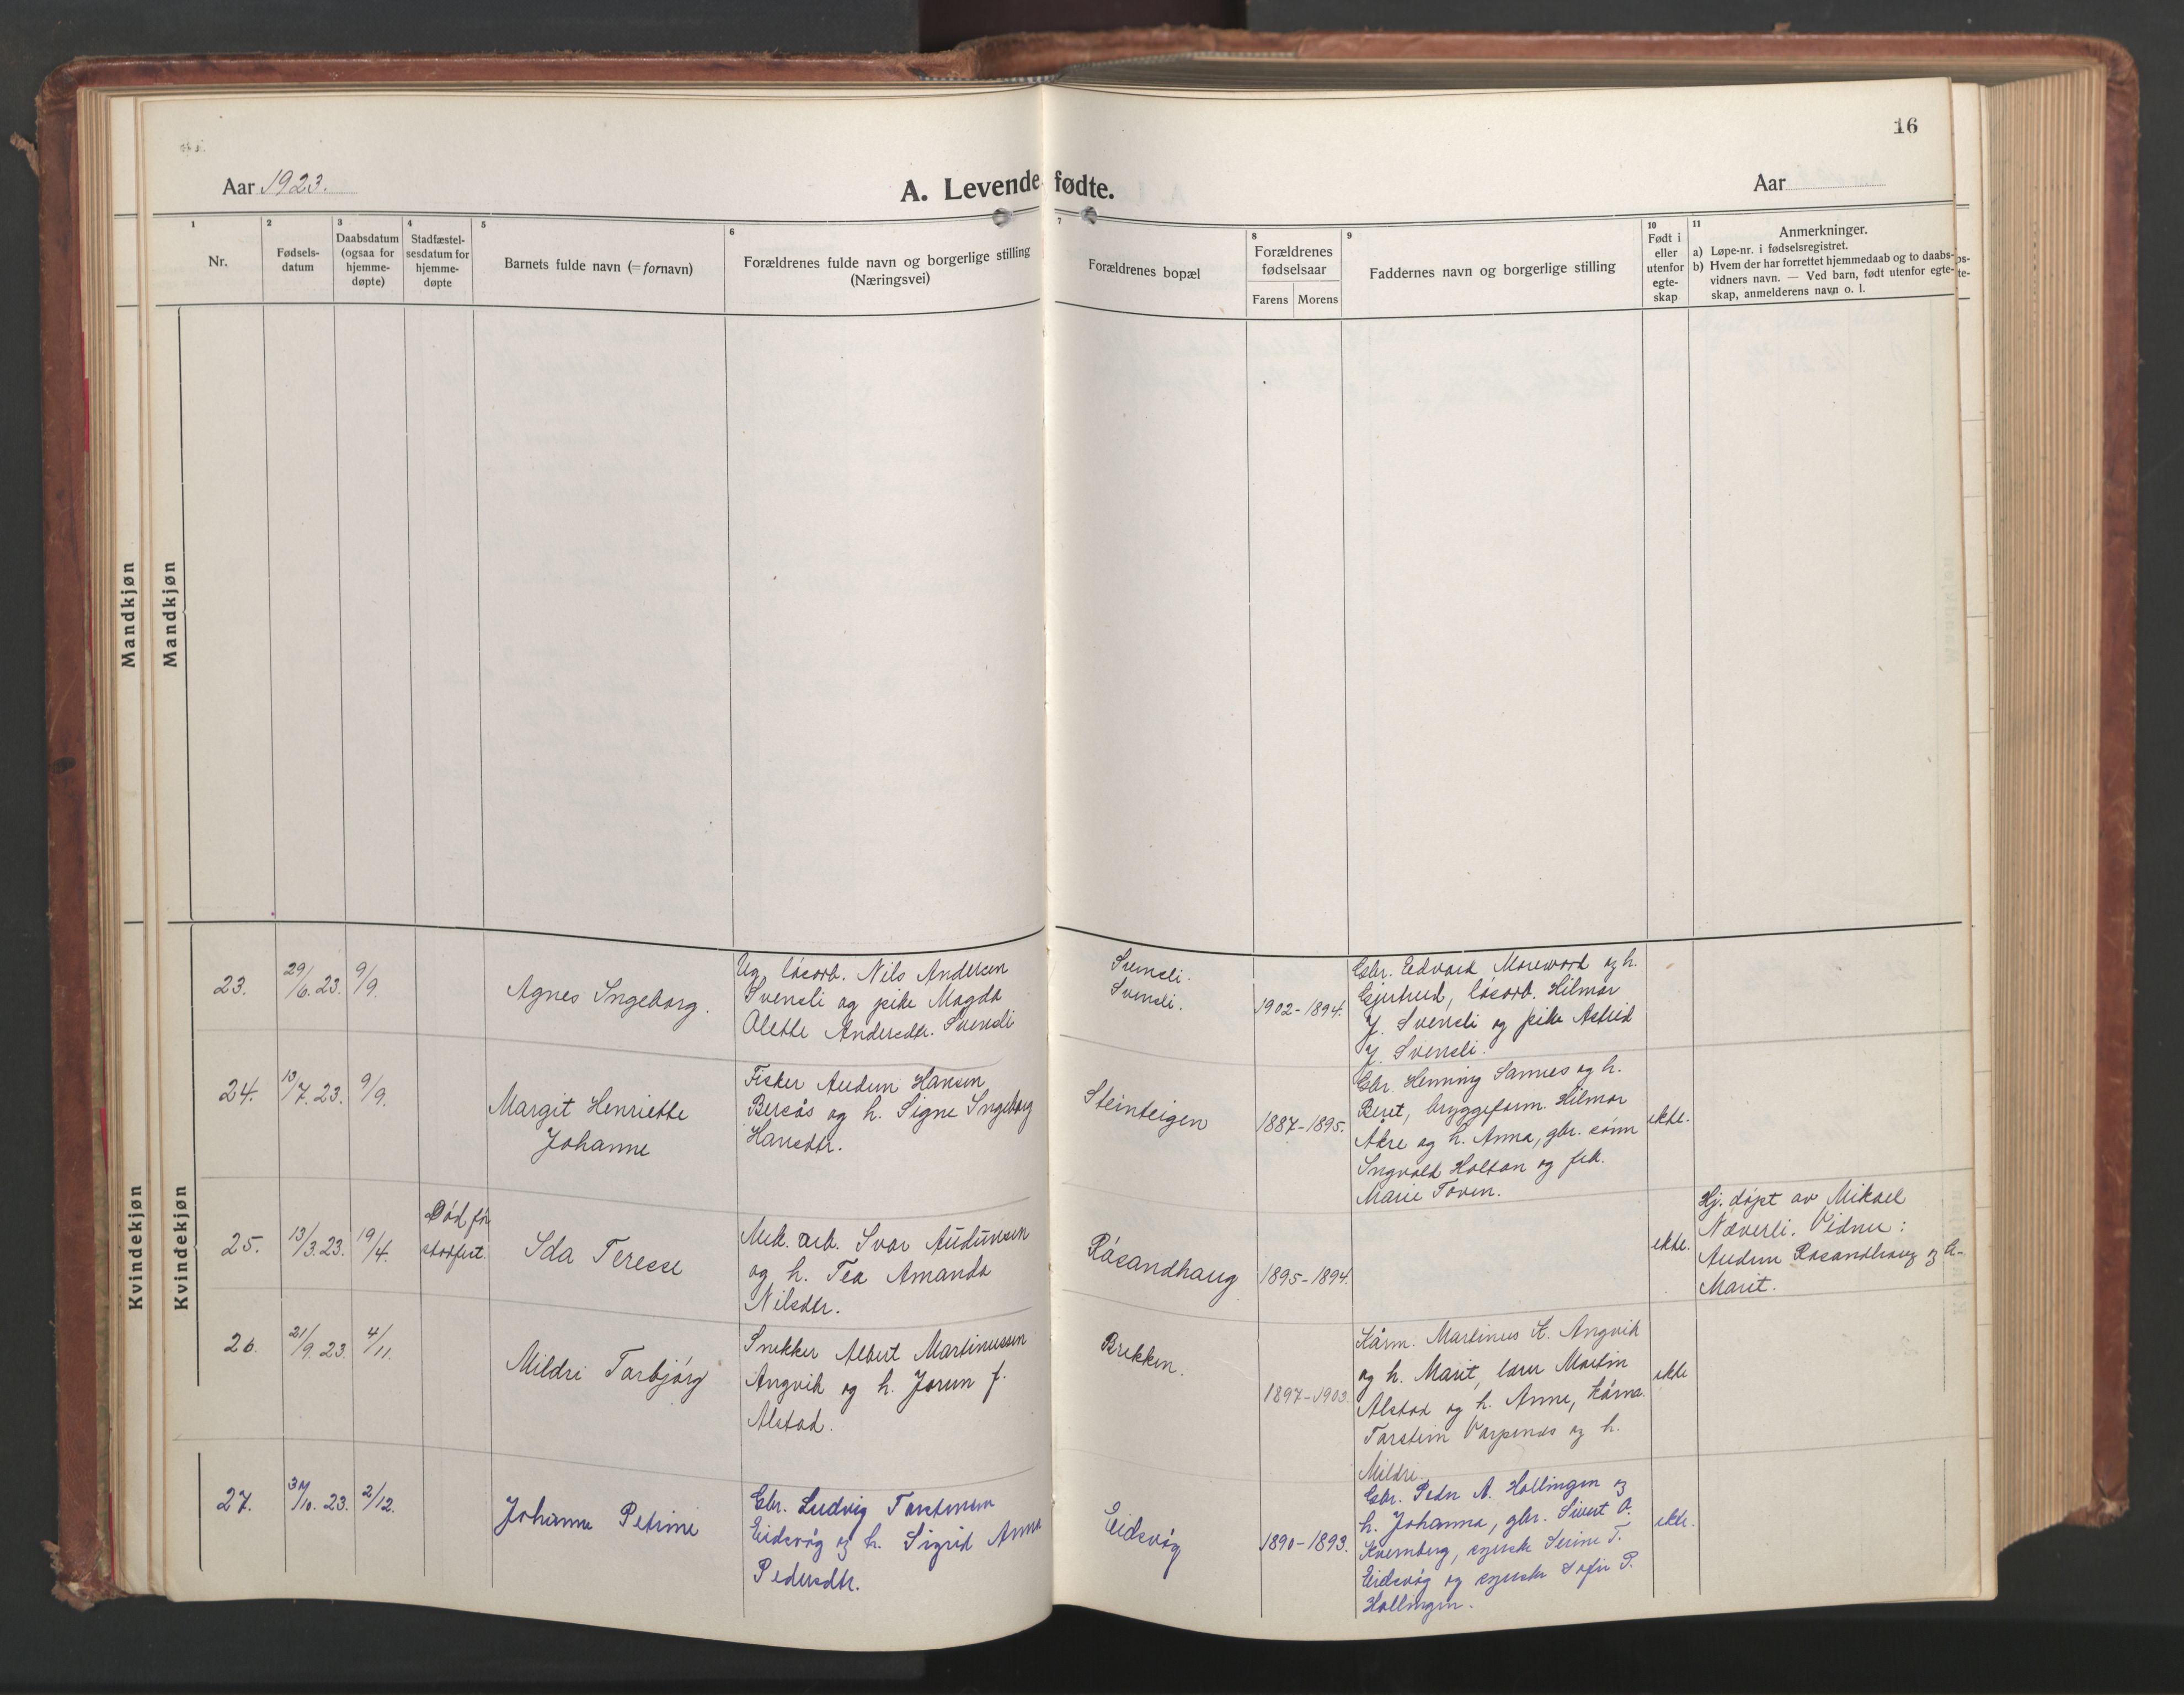 16
Aar 1923.
A. Levendefødte.
Aar
1
2
3
4
5
6
7
8
9
10
11
Nr.
Fødsels-
datum
Daabsdatum
(ogsaa for
hjemme-
døpte)
Stadfæstel-
sesdatum for
hjemme-
døpte
Barnets fulde navn (= fornavn)
Forældrenes fulde navn og borgerlige stilling
(Næringsvei)
Forældrenes bopæl
Forældrenes
fødselsaar
Farens
Morens
Faddernes navn og borgerlige stilling
Født i
eller
utenfor
egte-
skap
Anmerkninger.
a) Løpe-nr. i fødselsregistret.
b) Hvem der har forrettet hjemmedaab og to daabs-
vidners navn. — Ved barn, født utenfor egte-
skap, anmelderens navn o. l.
Mandkjøn
Mandkjøn
Kvindekjøn
Kvindekjøn
23.
29/6. 23.
9/9.
Agnes Ingeborg.
Ug. løsarb. Nils Andersen
Svensli og pike Magda
Olette Andersdtr. Svensli
Svensli.
Svensli.
1902-1894.
Gbr. Edvard og h.
Gjertrud, løsarb. Hilmar
J. Svensli og pike Astrid
J. Svensli.
24.
13/7. 23.
9/9.
Margit Henriette
Johanne
Fisker Audun Hansen
Bersås og h. Signe Ingeborg
Hansdtr.
Steinteigen
1887-1895.
Gbr. Henning Sannes og h.
Beret, bryggeform. Hilmar
Åkre og h. Anna, gbr. sønn
Ingvald Holtan og frk.
Marie Toven.
ekte.
25.
13/3. 23.
19/4.
Død før
stadfest
Ida Terese
Mek. arb. Ivar Audunsen
og h. Tea Amanda
Nilsdtr.
Røsandhaug
1895-1894.
ekte.
Hj. døpt av Mikael
Næverli. Vidner:
Audun Røsandhaug og h.
Marit.
26.
21/9. 23.
4/11.
Mildri Torbjørg
Snekker Albert Martinussen
Angvik og h. Jorun f.
Alstad.
Brekken.
1897-1903.
Kårm. Martinus K. Angvik
og h. Marit, lærer Martin
Alstad og h. Anne, kårm.
Torstein Varpenes og h.
Mildri.
ekte
27.
31/10. 23.
2/12.
Johanne Petrine
Gbr. Ludvig Torstensen
Eidsvåg og h. Sigrid Anna
Pedersdtr.
Eidsvåg
1890-1893.
Gbr. Peder A. Hollingen og
h. Johanna, gbr. Sivert O.
Kvernberg, syerske Serine T.
Eidsvåg og syerske Sofie P.
Hollingen.
ekte.